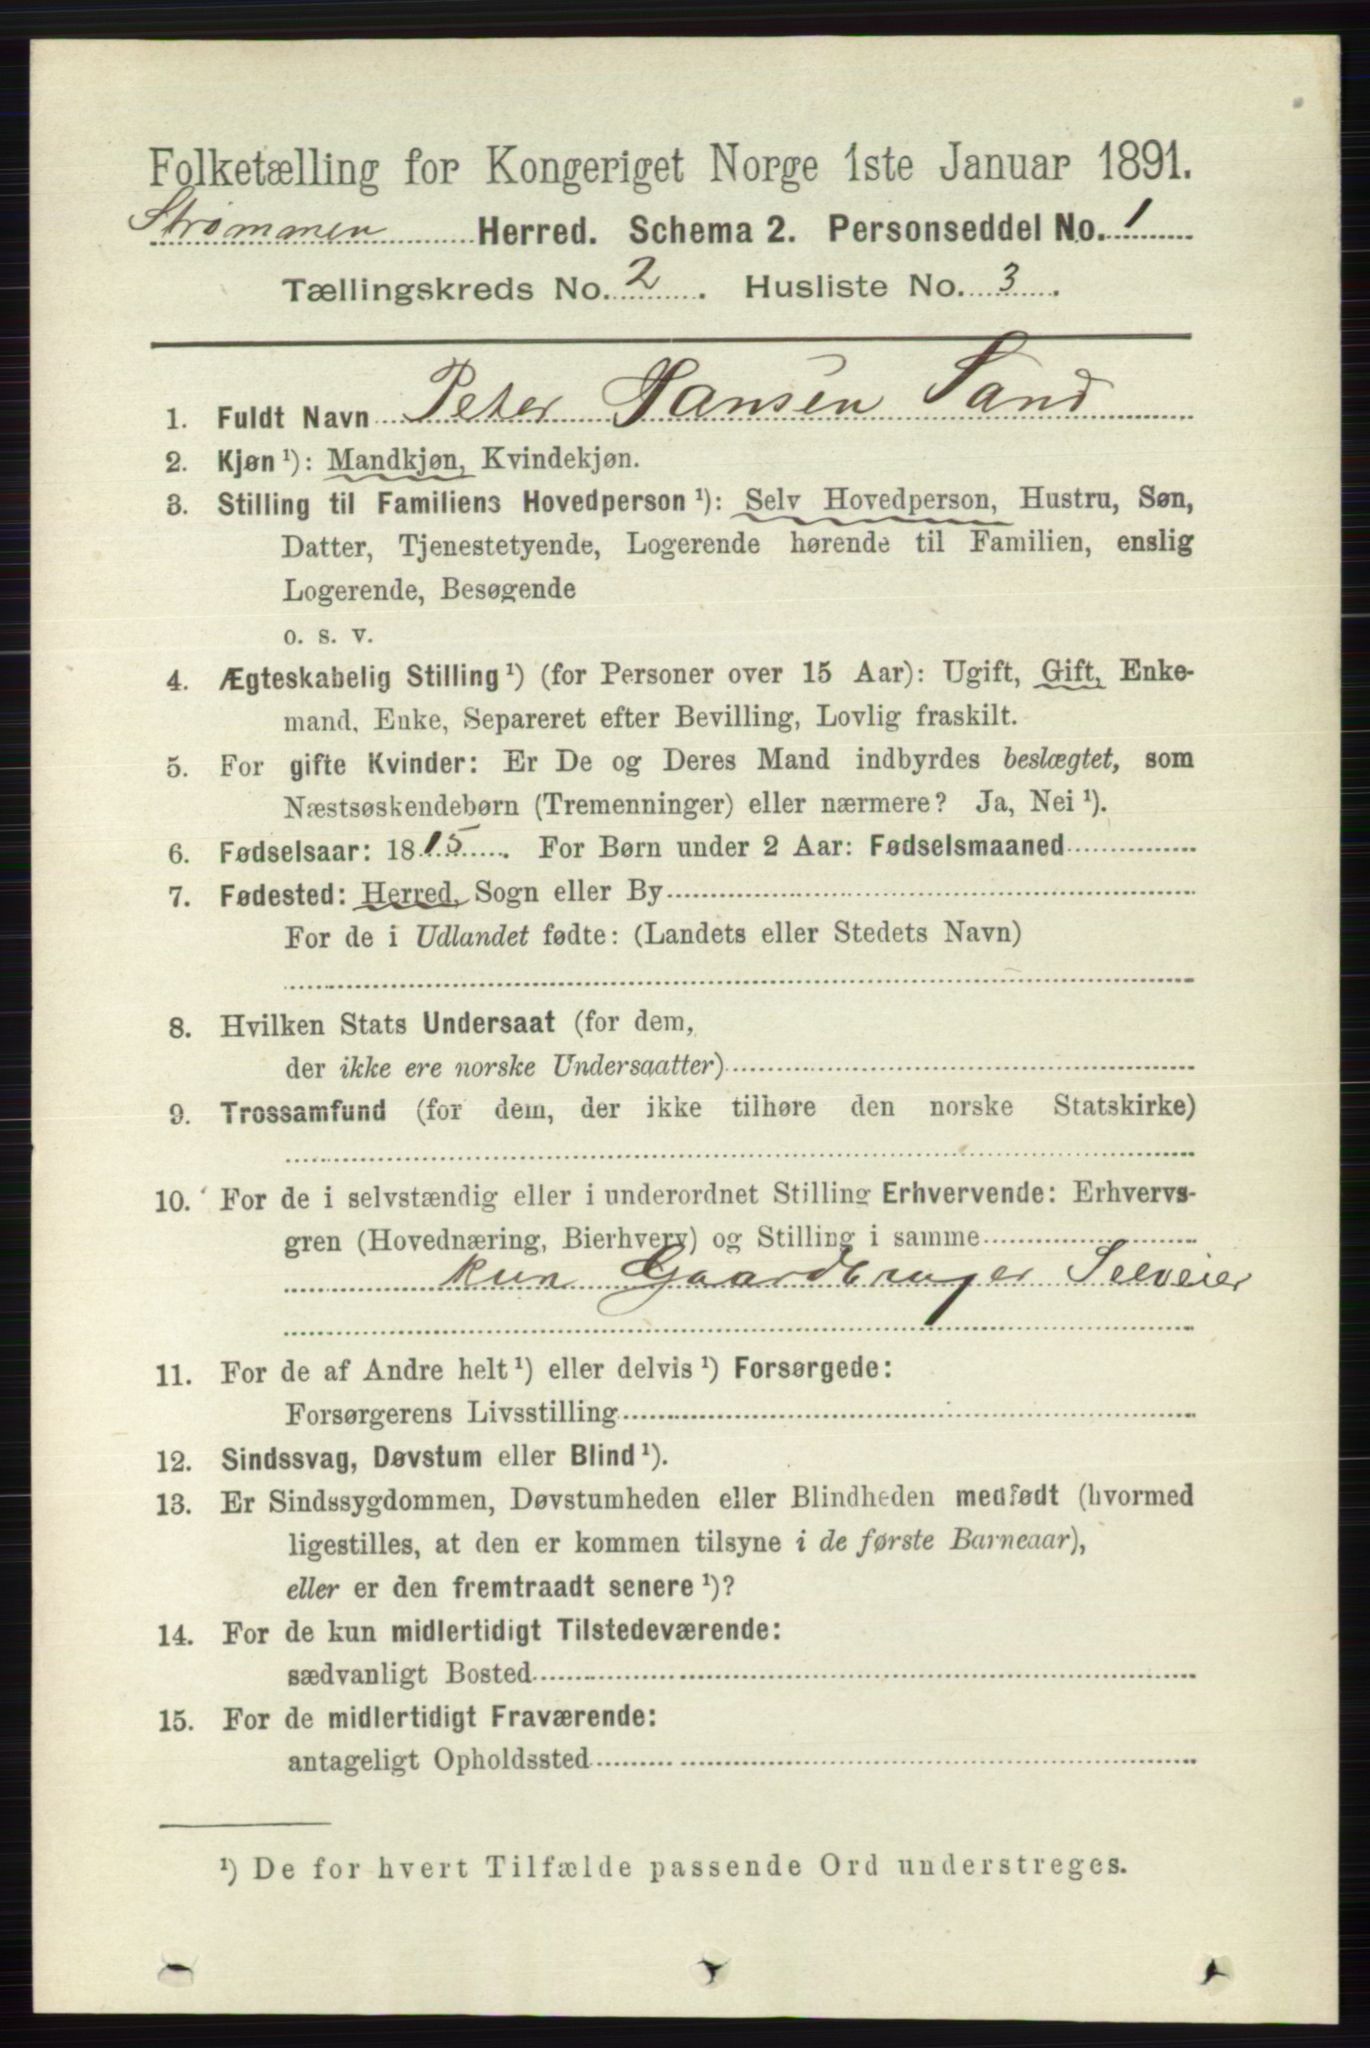 Folketælling for Kongeriget Norge 1ste Januar 1891.
Strømmen Herred. Schema 2. Personseddel No. 1
Tællingskreds No. 2. Husliste No. 3.
1. Fuldt Navn Peter Hansen Sand
2. Kjøn ¹): Mandkjøn, Kvindekjøn.
3. Stilling til Familiens Hovedperson ¹): Selv Hovedperson, Hustru, Søn,
Datter, Tjenestetyende, Logerende hørende til Familien, enslig
Logerende, Besøgende
o. s. v.
4. Ægteskabelig Stilling ¹) (for Personer over 15 Aar): Ugift, Gift, Enke-
mand, Enke, Separeret efter Bevilling, Lovlig fraskilt.
5. For gifte Kvinder: Er De og Deres Mand indbyrdes beslægtet, som
Næstsøskendebørn (Tremenninger) eller nærmere? Ja, Nei ¹).
6. Fødselsaar: 1815. For Børn under 2 Aar: Fødselsmaaned
7. Fødested: Herred, Sogn eller By
For de i Udlandet fødte: (Landets eller Stedets Navn)
8. Hvilken Stats Undersaat (for dem,
der ikke ere norske Undersaatter)
9. Trossamfund (for dem, der ikke tilhøre den norske Statskirke)
10. For de i selvstændig eller i underordnet Stilling Erhvervende: Erhvervs-
gren (Hovednæring, Bierhverv) og Stilling i samme
kun Gaardbruger Selveier
11. For de af Andre helt ¹) eller delvis ¹) Forsørgede:
Forsørgerens Livsstilling
12. Sindssvag, Døvstum eller Blind ¹).
13. Er Sindssygdommen, Døvstumheden eller Blindheden medfødt (hvormed
ligestilles, at den er kommen tilsyne i de første Barneaar),
eller er den fremtraadt senere ¹)?
14. For de kun midlertidigt Tilstedeværende:
sædvanligt Bosted
15. For de midlertidigt Fraværende:
antageligt Opholdssted
¹) De for hvert Tilfælde passende Ord understreges.